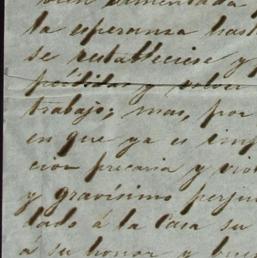 bien alimentada
la esperanza hast
se restableciese y
perdidas y volver
trabajo; mas, por
en que ya es imp
cion precaria y vio
y gravísimo perju
dado á la Casa su
á su honor y bue